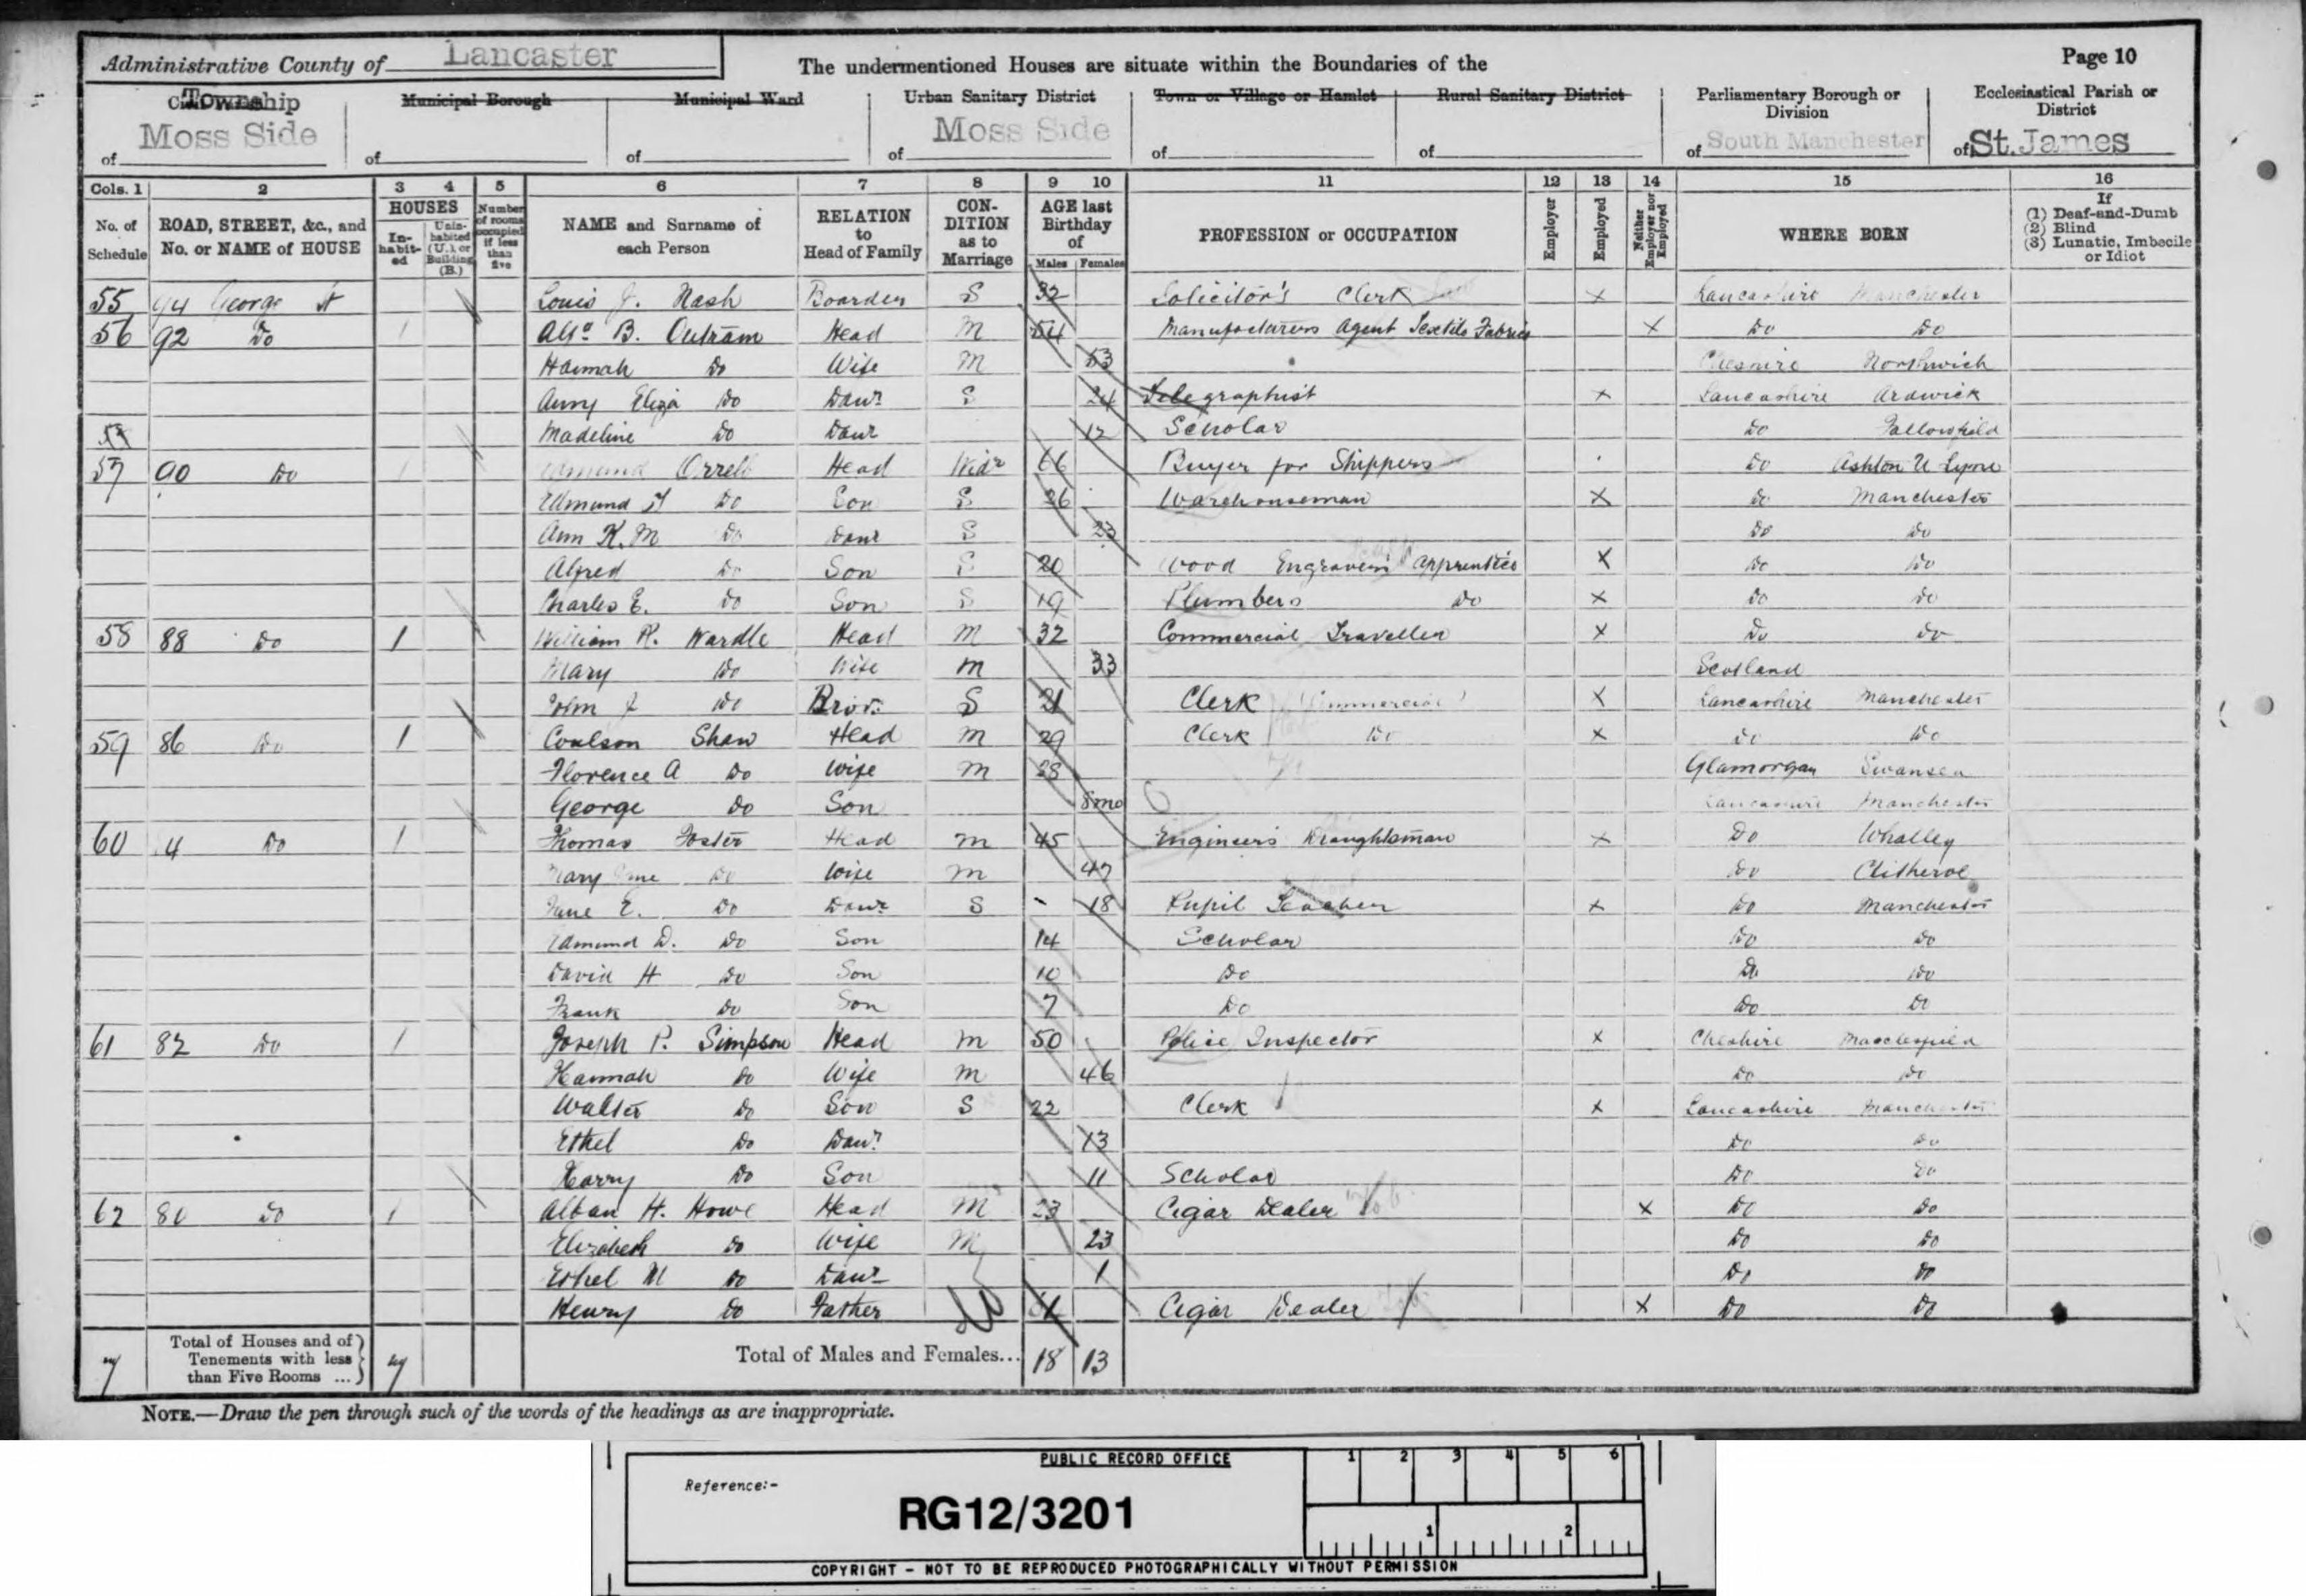 Page 10
Administrative County of Lancaster
The undermentioned Houses are situate within the Boundaries of the
Township of Moss Side
Municipal Borough of
Municipal Ward of
Urban Sanitary District of Moss Side
Town or Village or Hamlet of
Rural Sanitary District of
Parliamentary Borough or Division of South Manchester
Ecclesiastical Parish or District of St. James
Cols. 1 2 3 4 5 6 7 8 9 10 11 12 13 14 15 16
No. of Schedule
ROAD, STREET, &c., and No. or NAME of HOUSE
HOUSES
In-habit-ed
Unin-habited (U.), or Building (B.)
Number of rooms occupied if less than five
NAME and Surname of each Person
RELATION to Head of Family
CON-DITION as to Marriage
AGE last Birthday of
Males Females
PROFESSION or OCCUPATION
Employer
Employed
Neither Employer nor Employed
WHERE BORN
If
(1) Deaf-and-Dumb
(2) Blind
(3) Lunatic, Imbecile or Idiot
55 94 George St Louis J. Nash Boarder S 32 Solicitor's Clerk X Lancashire Manchester
56 92 Do 1 B. Outram Head M 54 Manufacturers Agent Textile Fabrics X Do Do
Hannah Do Wife M 53 Cheshire Northwich
Amy Eliza Do Daur S 24 Telegraphist X Lancashire Ardwick
Madeline Do Daur 12 Scholar Do Fallowfield
57 90 Do 1 Edmund Orrell Head Widr 66 Buyer for Shippers Do Ashton U Lyne
Edmund Do Son S 26 Warehouseman X Do Manchester
Ann K. M Do Daur S 23 Do Do
Alfred Do Son S 20 Wood Engravers Apprentice X Do Do
Charles E. Do Son S 19 Plumbers Do X Do Do
58 88 Do 1 William R. Wardle Head M 32 Commercial Traveller X Do Do
Mary Do Wife M 33 Scotland
John J Do Bror. S 21 Clerk (Commercial) X Lancashire Manchester
59 86 Do 1 Coulson Shaw Head M 29 Clerk Do X Do Do
Florence A Do Wife M 28 Glamorgan Swansea
George Do Son 8mo Lancashire Manchester
60 4 Do 1 Thomas Foster Head M 45 Engineers Draughtsman X Do Whalley
Mary Jane Do Wife M 47 Do Clitheroe
Jane E. Do Daur S - 18 Pupil Teacher X Do Manchester
Edmund D. Do Son 14 Scholar Do Do
David H Do Son 10 Do Do Do
Frank Do Son 7 Do Do Do
61 82 Do 1 Joseph P. Simpson Head M 50 Police Inspector X Cheshire Macclesfield
Hannah Do Wife M 46 Do Do
Walter Do Son S 22 Clerk X Lancashire Manchester
Ethel Do Daur 13 Do Do
Harry Do Son 11 Scholar Do Do
62 80 Do 1 Alban H. Howe Head M 23 Cigar Dealer X Do Do
Elizabeth Do Wife M 23 Do Do
Ethel M Do Daur 1 Do Do
Henry Do Father 61 Cigar Dealer X Do Do
7 Total of Houses and of Tenements with less than Five Rooms ... 7 Total of Males and Females... 18 13
NOTE.—Draw the pen through such of the words of the headings as are inappropriate.
PUBLIC RECORD OFFICE
1 2 3 4 5 6
Reference:-
RG12/3201
1 2
COPYRIGHT - NOT TO BE REPRODUCED PHOTOGRAPHICALLY WITHOUT PERMISSION